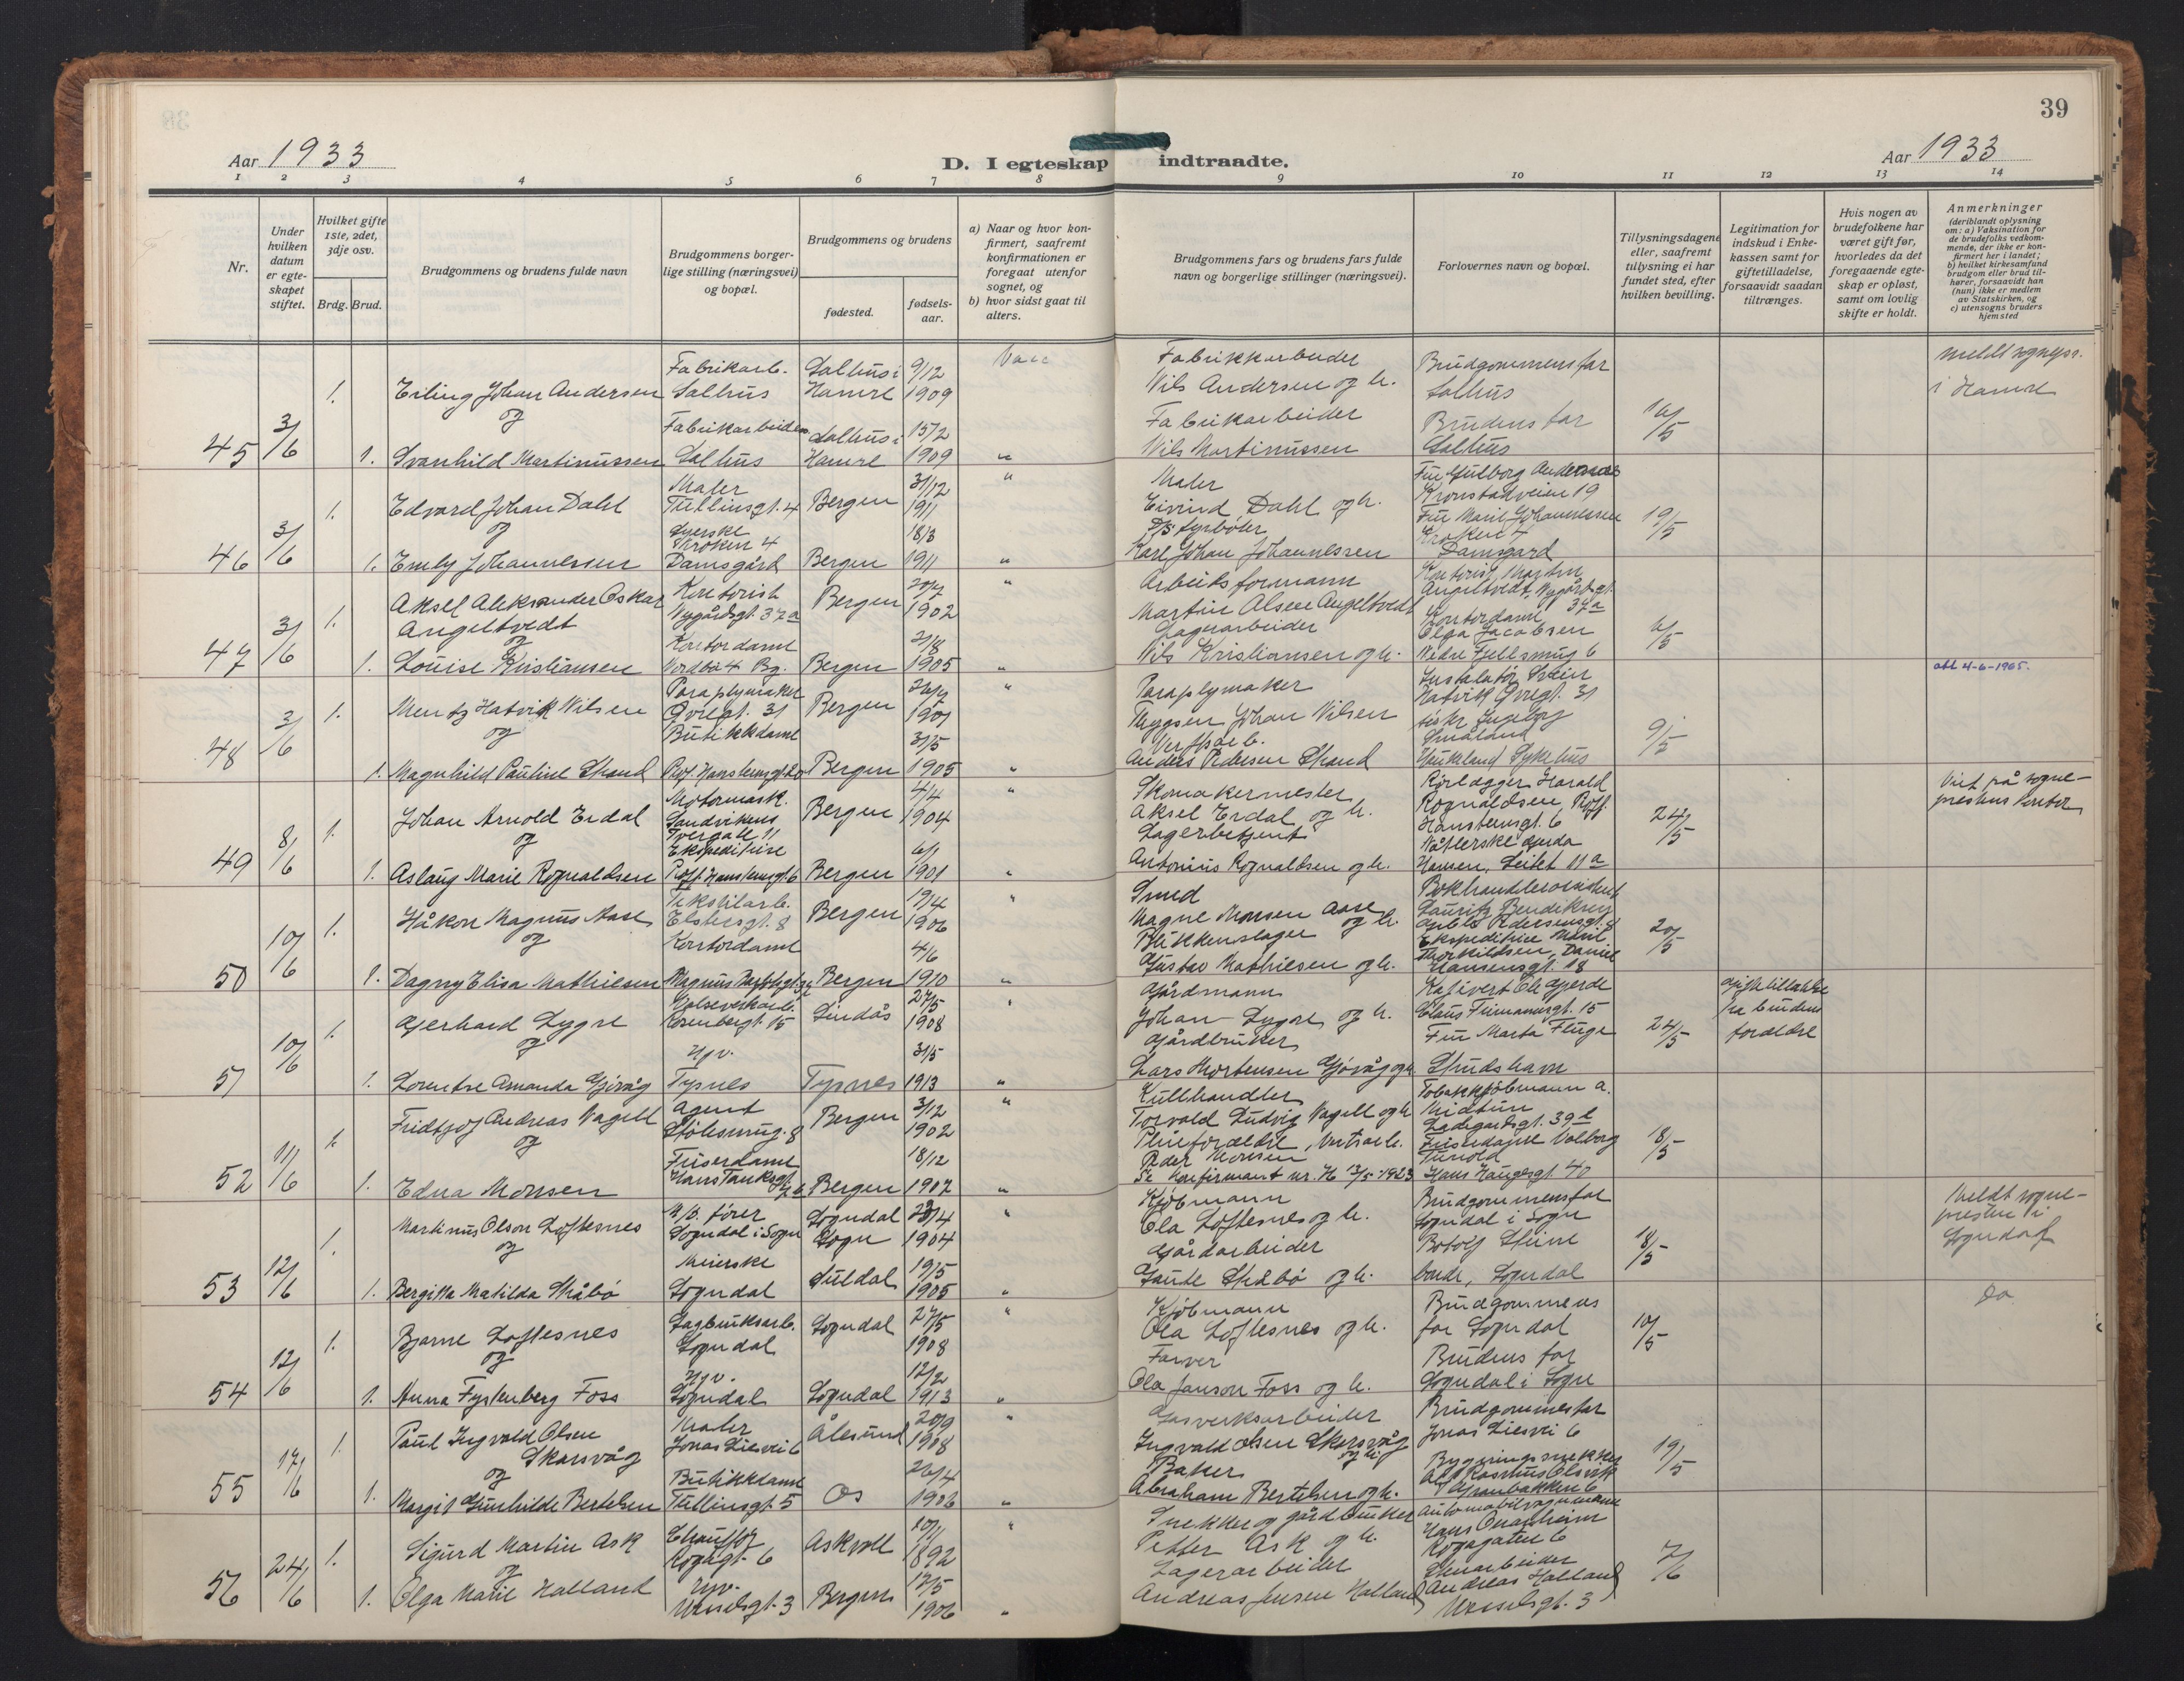 39
Aar 1933
D. I egteskap indtraadte.
Aar 1933
1 2 3 4 5 6 7 8 9 10 11 12 13 14
Nr.
Under hvilken datum er egteskapet stiftet.
Hvilket gifte 1ste, 2det, 3dje osv.
Brdg. Brud.
Brudgommens og brudens fulde navn
Brudgommens borgerlige stilling (næringsvei) og bopæl.
Brudgommens og brudens
fødested.
fødselsaar.
a) Naar og hvor konfirmert, saafremt konfirmationen er foregaat utenfor sognet, og
b) hvor sidst gaat til alters.
Brudgommens fars og brudens fars fulde navn og borgerlige stillinger (næringsvei).
Forlovernes navn og bopæl.
Tillysningsdagene eller, saafremt tillysning ei har fundet sted, efter hvilken bevilling.
Legitimation for indskud i Enkekassen samt for giftetilladelse, forsaavidt saadan tiltrænges.
Hvis nogen av brudefolkene har været gift før, hvorledes da det foregaaende egteskap er opløst, samt om lovlig skifte er holdt.
Anmerkninger
(deriblandt oplysning om: a) Vaksination for de brudefolks vedkommende, der ikke er konfirmert her i landet; b) hvilket kirkesamfund brudgom eller brud tilhører, forsaavidt han (hun) ikke er medlem av Statskirken, og c) utensogns bruders hjemsted
45 3/6 1. Erling Johan Andersen Fabrikarb. Salhus Salhus i Hamre 9/12 1909 Fabrikkarbeider Nils Andersen og h. Brudgommens far Salhus 16/5 meldt sognepr. i Hamre
og
1. Svanhild Martinussen Fabrikarbeider Salhus Salhus i Hamre 15/2 1909 " Fabrikarbeider Nils Martinussen Brudens far Salhus
46 3/6 1. Edvard Johan Dahl Maler Tullinsgt. 4 Bergen 31/12 1911 " Maler Eivind Dahl og h. Kronstadveien 19 19/5
og
1. Emly Johannessen Syerske Kroken 4 Damsgård Bergen 18/8 1911 " D/S fyrbøter Karl Johan Johannessen Fru Marie Johannessen Kroken 4 Damsgård
47 3/6 1. Aksel Aleksander Oskar Angeltvedt Kontorist Nygårdsgt. 37a Bergen 1902 " Arbeidsformann Martin Olsen Angeltvedt Kontorist Martin Angeltvedt, Nygårdsgt. 37a 6/5
og
1. Louise Kristiansen Kontordame Bergen 2/8 1905 " Lagerarbeider Nils Kristiansen og h. Kontordame Olga Jacobsen Nedre Fjellsmug 6 att 4-6-1965.
48 3/6 1. Mentz Hatvik Nilsen Paraplymaker Øvregt. 31 Bergen " Paraplymaker Johan Nilsen Hatvik Øvregt. 31 9/5
og
1. Magnhild Pauline Strand Butikkdame Prof. Hansteensgt. Bergen 31/5 1905 " Verftsarb. Anders Pedersen Strand Ingeborg Småland Haukland Sykehus
49 8/6 1. Johan Arnold Erdal Motormask. Sandvikens Tvergate 11 Bergen 4/4 1904 " Skomakermester Aksel Erdal og h. Rørlægger Harald Rognaldsen, Proff. Hansteensgt. 6 24/5 Viet på sogneprestens kontor
og
1. Aslaug Marie Rognaldsen Ekspeditrise Proff. Hansteensgt. 6 Bergen 6/1 1901 " Lagerbetjent Antonius Rognaldsen og h. Hansen, Leitet 11a
50 10/6 1. Håkon Magnus Aase Tekstilarb. Elstersgt. 8 Bergen 1906 " Smed Magne Monsen Aase og h. Bokhandlerassistent Lauritz Bendiksen 20/5
og
1. Dagny Elisa Mathiesen Kontordame Bergen 4/6 1910 " Blikkenslager Gustav Mathiesen og h. Ekspeditrice Marie Thorkildsen, Daniel Hansensgt. 18
51 10/6 1. Gerhard Lygre Rosenbergt. 15 Lindås 27/5 1908 " Gårdmann Johan Lygre og h. Ole Gjerde 15 24/5 Giftetilladelse fra brudens foreldre
og
1. Lorentse Amanda Gjøvåg Hjv. Typnes Typnes 31/5 1913 " Gårdbruker Lars Mortensen Gjøvåg og h. Fru Marta Fluge Skudshavn
52 11/6 1. Fridtjof Andreas Nagell Agent Stølesmug. 8 Bergen 3/12 1902 " Kullhandler Torvald Ludvig Nagell og h. Tobakkjøbmann A. Midtun Ladegårdsgt. 39 18/5
og
1. Edna Monsen Friserdame Hans Tanksgt. Bergen 18/12 1907 " Pleieforældre, Peder Monsen Se konfirmant nr. 16 13/5-1923 Friserdame Valborg Tunold Hans Haugesgt. 40
53 12/6 1. Martinus Olson Loftesnes M/B. fører Sogndal i Sogn Sogndal Sogn 1904 " Kjøbmann Ola Loftesnes og h. Brudgommens far Sogndal i Sogn 18/5 Meldt sognepresten i Sogndal
og
1. Bergitta Matilda Skåbø Meierske Sogndal Suldal 19/5 1905 " Gårdarbeider Gaute Skåbø og h. Botolf Steine bonde, Sogndal
54 12/6 1. Bjarne Loftesnes Sagbruksarb. Sogndal Sogndal 27/5 1908 " Kjøbmann Ola Loftesnes og h. Brudgommens far Sogndal 10/5 Do
og
1. Anna Fystenberg Foss Hjv. Sogndal Sogndal 12/2 1913 " Farver Ola Janson Foss og h. Brudens far Sogndal i Sogn
55 17/6 1. Paul Ingvald Olsen Skarsvåg Maler Jonas Liesvei 6 Ålesund 20/9 1908 " Gasverksarbeider Ingvald Olsen Skarsvåg og h. Brudgommes far Jonas Liesvei 6 19/5
og
1. Margit Gunhilde Bertelsen Butikkdame Tullinsgt. 5 Os 26/4 1906 " Baker Abraham Bertelsen og h. Bygningssnekker
56 24/6 1. Sigurd Martin Ask Chauffør Rogagt. 6 Askvoll 10/11 1892 " Snekker og gårdbruker Petter Ask og h. Automobilvognmann Hans Rogagaten 6 7/6
og
1. Olga Marie Halland Hjv. Wesselsgt. 3 Bergen 12/5 1906 " Lagerarbeider Andreas Jensen Halland Andreas Halland Wesselsgt. 3